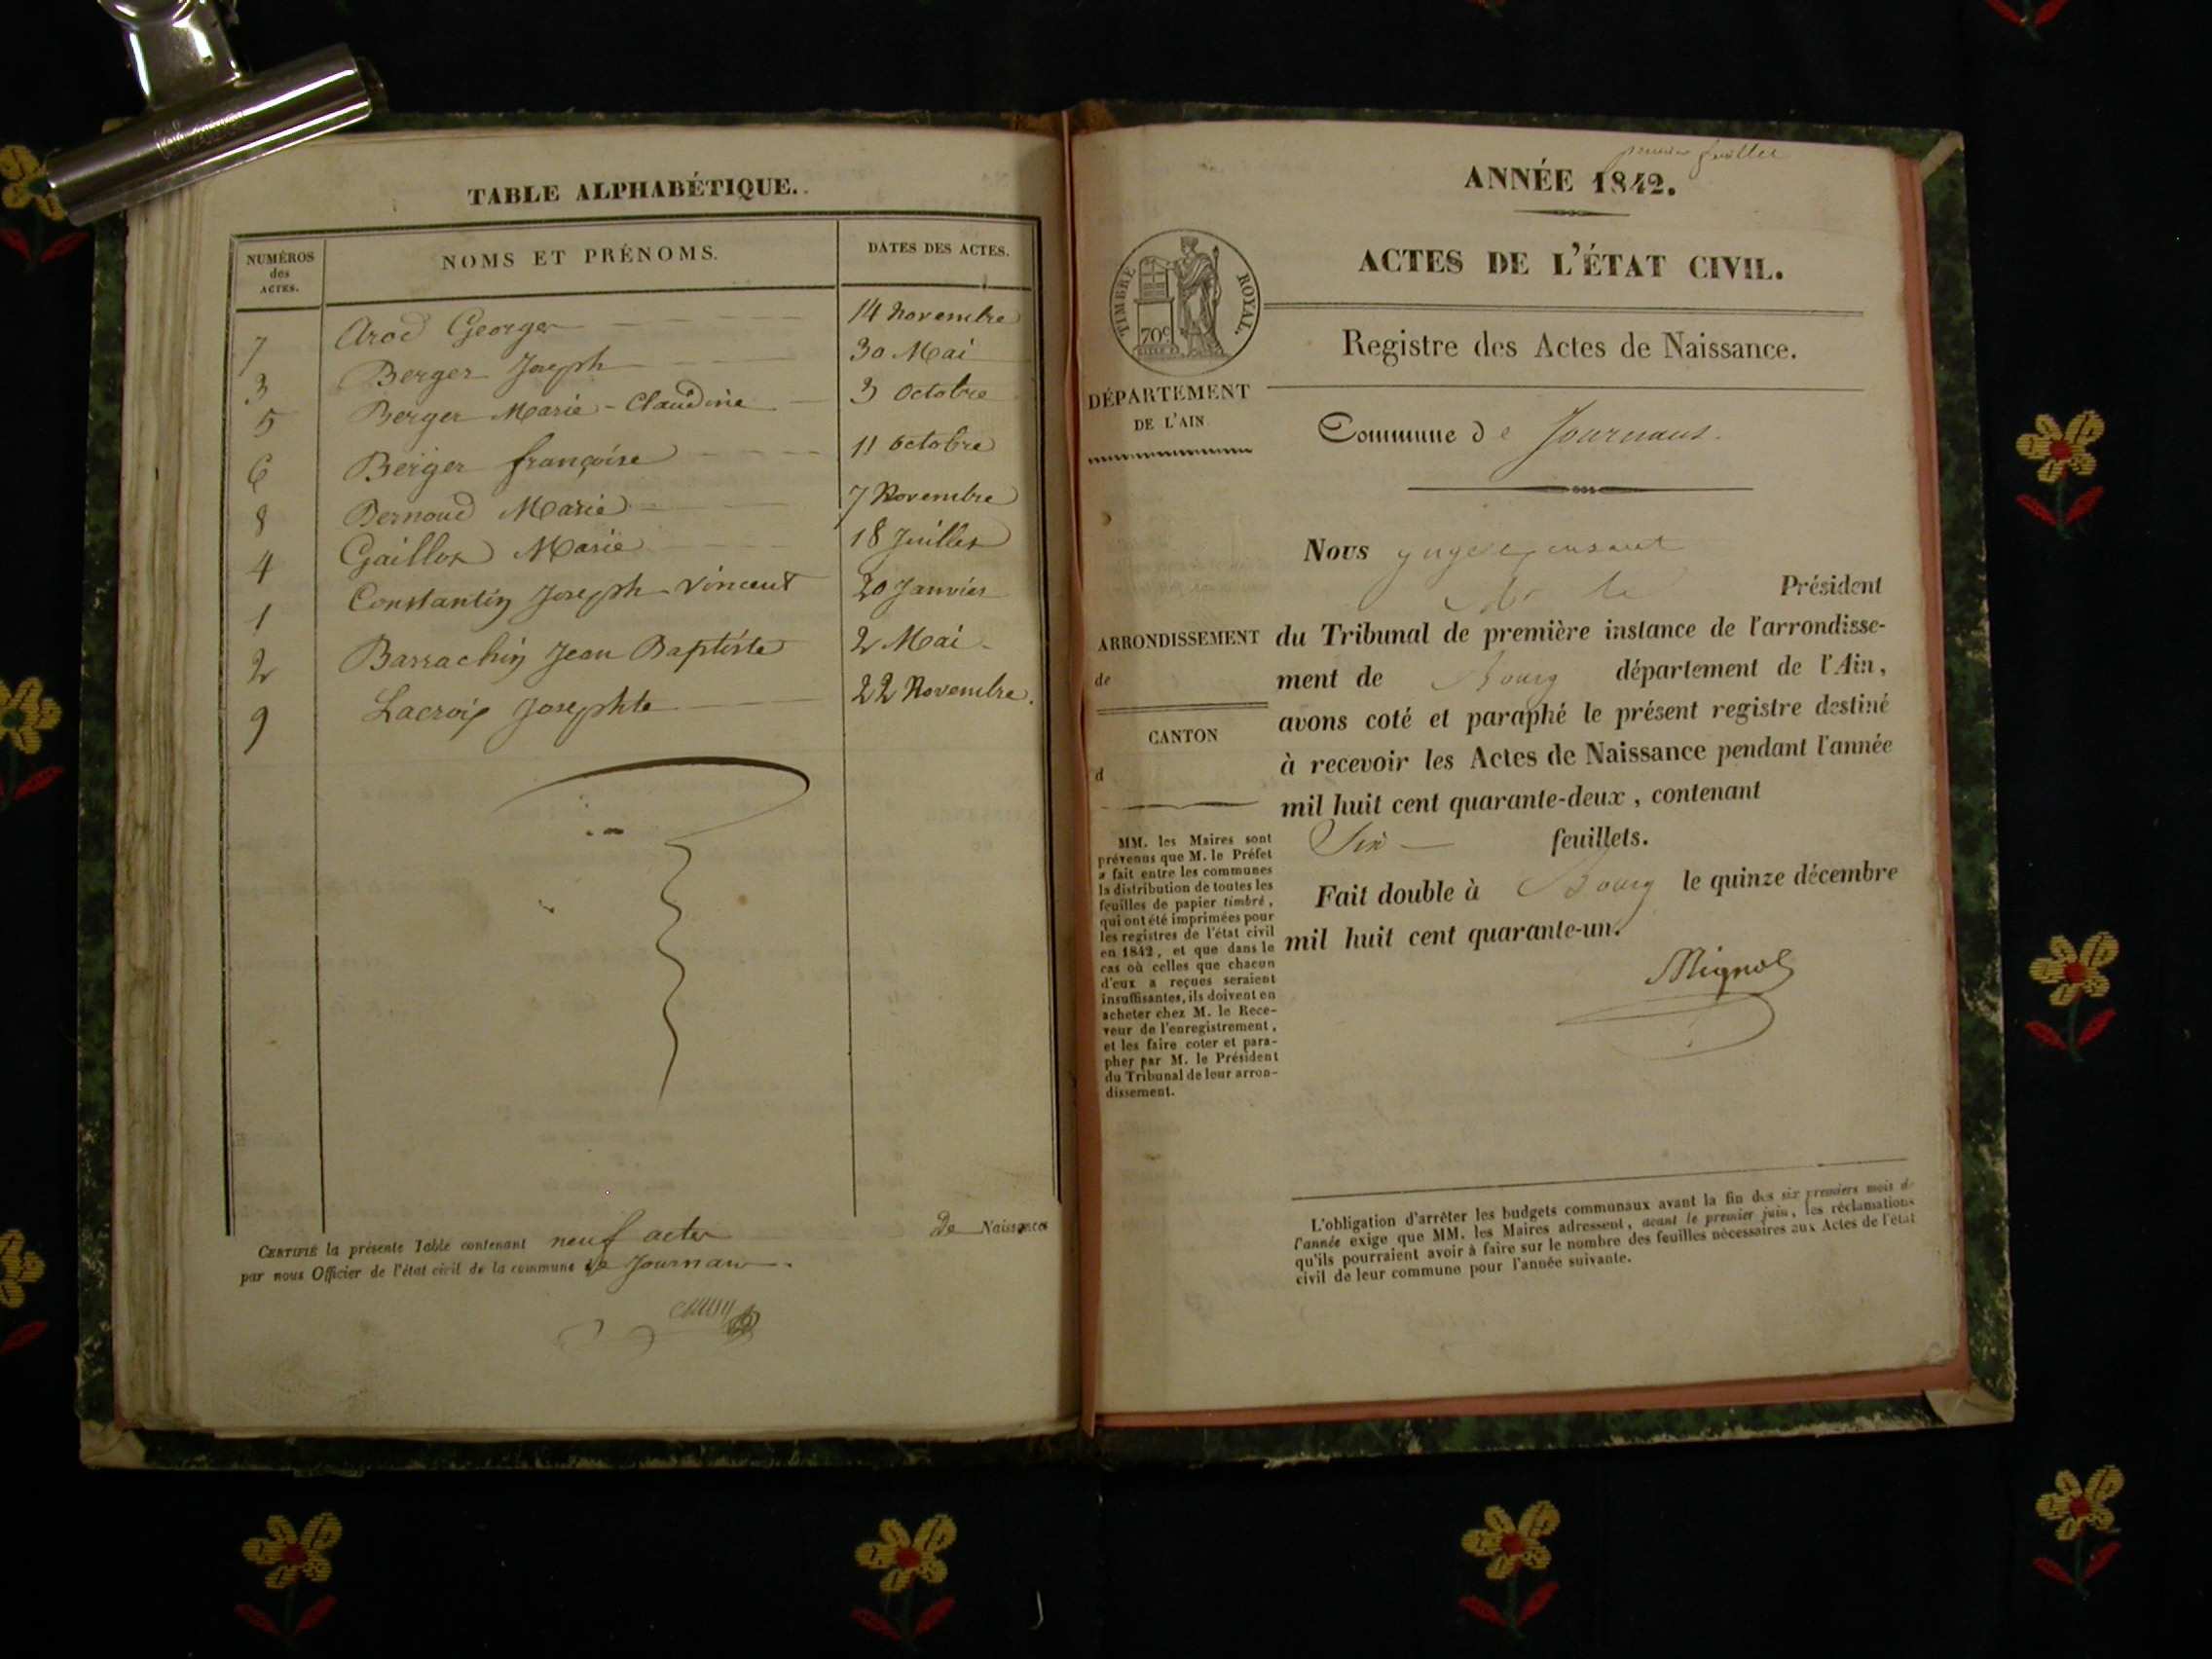 TABLE ALPHABÉTIQUE.
NUMÉROS des ACTES.
NOMS ET PRÉNOMS.
DATES DES ACTES.
7 Arod George 14 Novembre
3 Berger Joseph 30 Mai
5 Berger Marie-Claudine 3 Octobre
6 Berger françoise 11 Octobre
8 Bernoud Marie 7 Novembre
4 Marie 18 Juillet
1 Constantin Joseph Vincent 20 Janvier
2 Barrachin Jean Baptiste 2 Mai
9 Lacroix Josephte 22 Novembre.
CERTIFIÉ la présente Table contenant neuf actes de Naissances
par nous Officier de l'état civil de la commune de Journans.
premier feuillet
ANNÉE 1842.
ACTES DE L'ÉTAT CIVIL.
TIMBRE ROYAL.
70c
Registre des Actes de Naissance.
DÉPARTEMENT
DE L'AIN
Commune de Journans.
Nous
Président
ARRONDISSEMENT
de
CANTON
d
du Tribunal de première instance de l'arrondisse-
ment de Bourg département de l'Ain,
avons coté et paraphé le présent registre destiné
à recevoir les Actes de Naissance pendant l'année
mil huit cent quarante-deux, contenant
Six feuillets.
Fait double à Bourg le quinze décembre
mil huit cent quarante-un.
Mignot
MM. les Maires sont
prévenus que M. le Préfet
a fait entre les communes
la distribution de toutes les
feuilles de papier timbré,
qui ont été imprimées pour
les registres de l'état civil
en 1842, et que dans le
cas où celles que chacun
d'eux a reçues seraient
insuffisantes, ils doivent en
acheter chez M. le Rece-
veur de l'enregistrement,
et les faire coter et para-
pher par M. le Président
du Tribunal de leur arron-
dissement.
L'obligation d'arrêter les budgets communaux avant la fin des six premiers mois de
l'année exige que MM. les Maires adressent, avant le premier juin, les réclamations
qu'ils pourraient avoir à faire sur le nombre des feuilles nécessaires aux Actes de l'état
civil de leur commune pour l'année suivante.